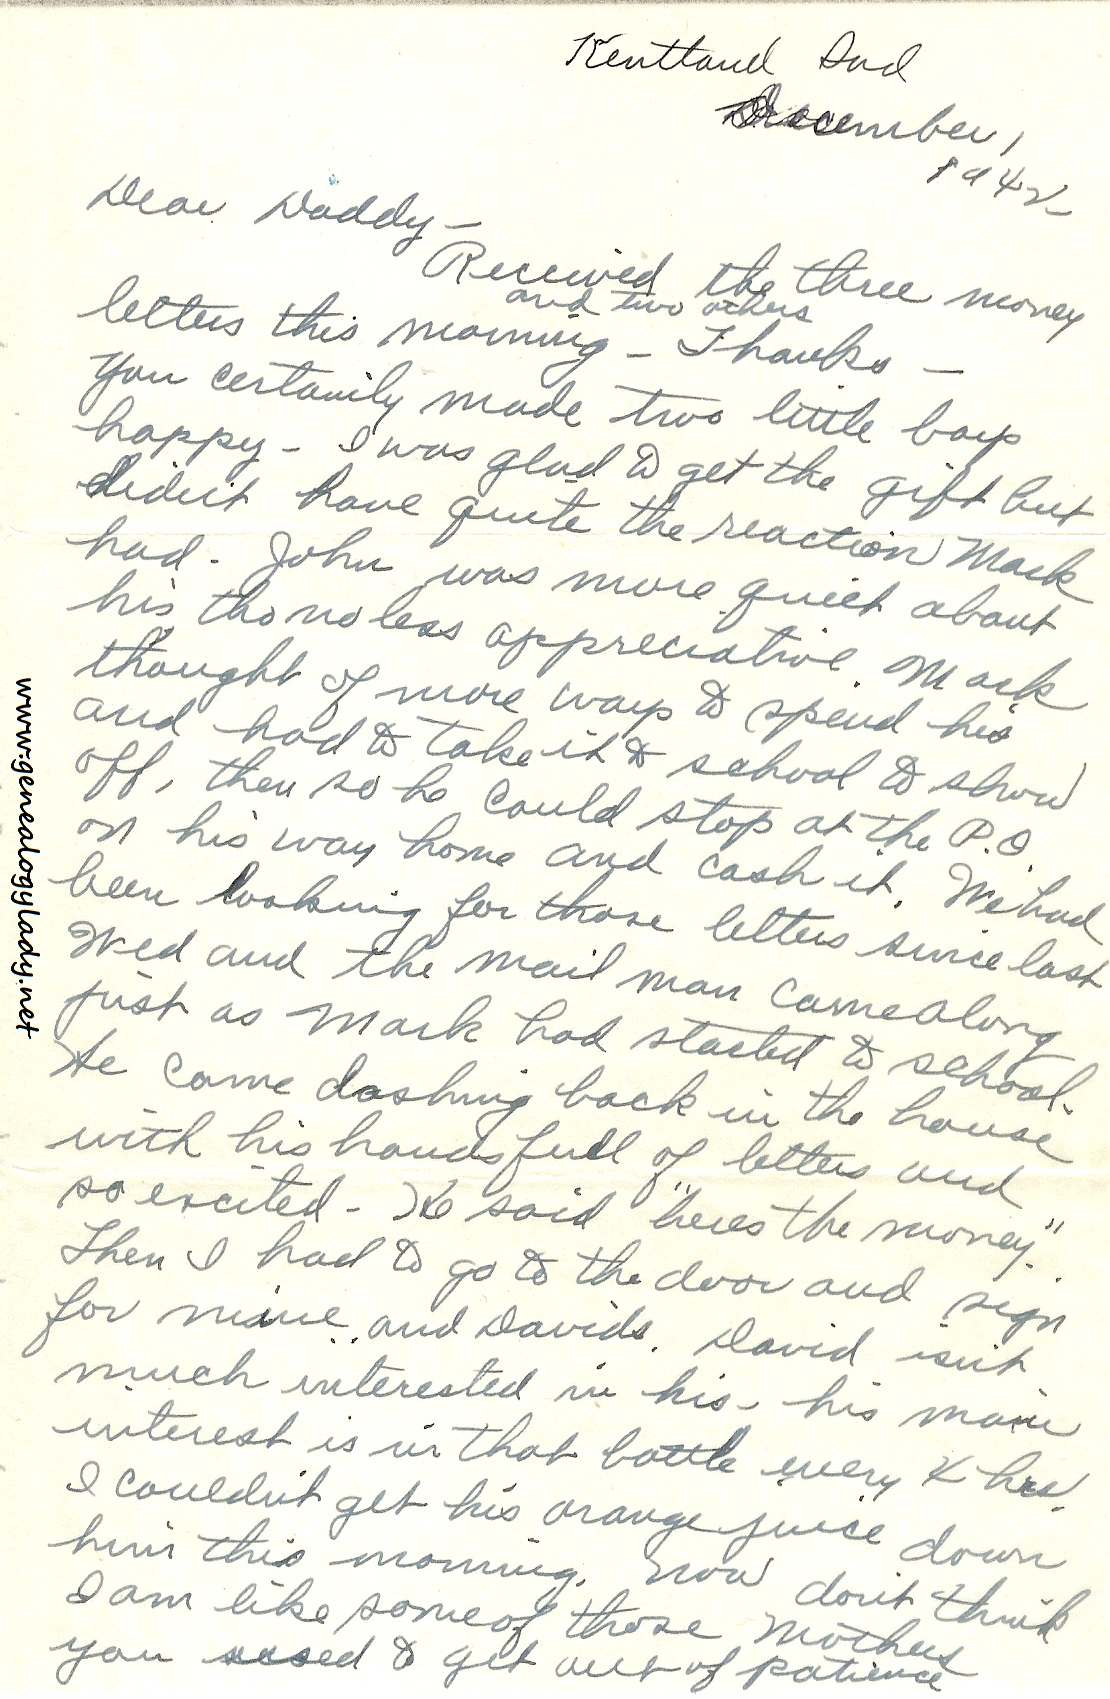 Kentland Ind
December 1
1942
Dear Daddy -
Received the three money
and two others
letters this morning - Thanks -
You certainly made two little boys
happy - I was glad to get the gift but
didn't have quite the reaction Mark
had. John was more quiet about
his tho no less appreciative. Mark
thought of more ways to spend his
and had to take it to school to show
off, then so he could stop at the P.O.
on his way home and cash it. We had
been looking for those letters since last
Wed and the mail man came along
just as Mark had started to school.
He came dashing back in the house
with his hands full of letters and
so excited - He said "heres the money."
Then I had to go to the door and sign
for mine and Davids. David isn't
much interested in his - his main
interest is in that bottle every 4 hrs.
I couldn't get his orange juice down
him this morning. Now don't think
I am like some of those mothers
you used to get out of patience
www.genealogylady.net